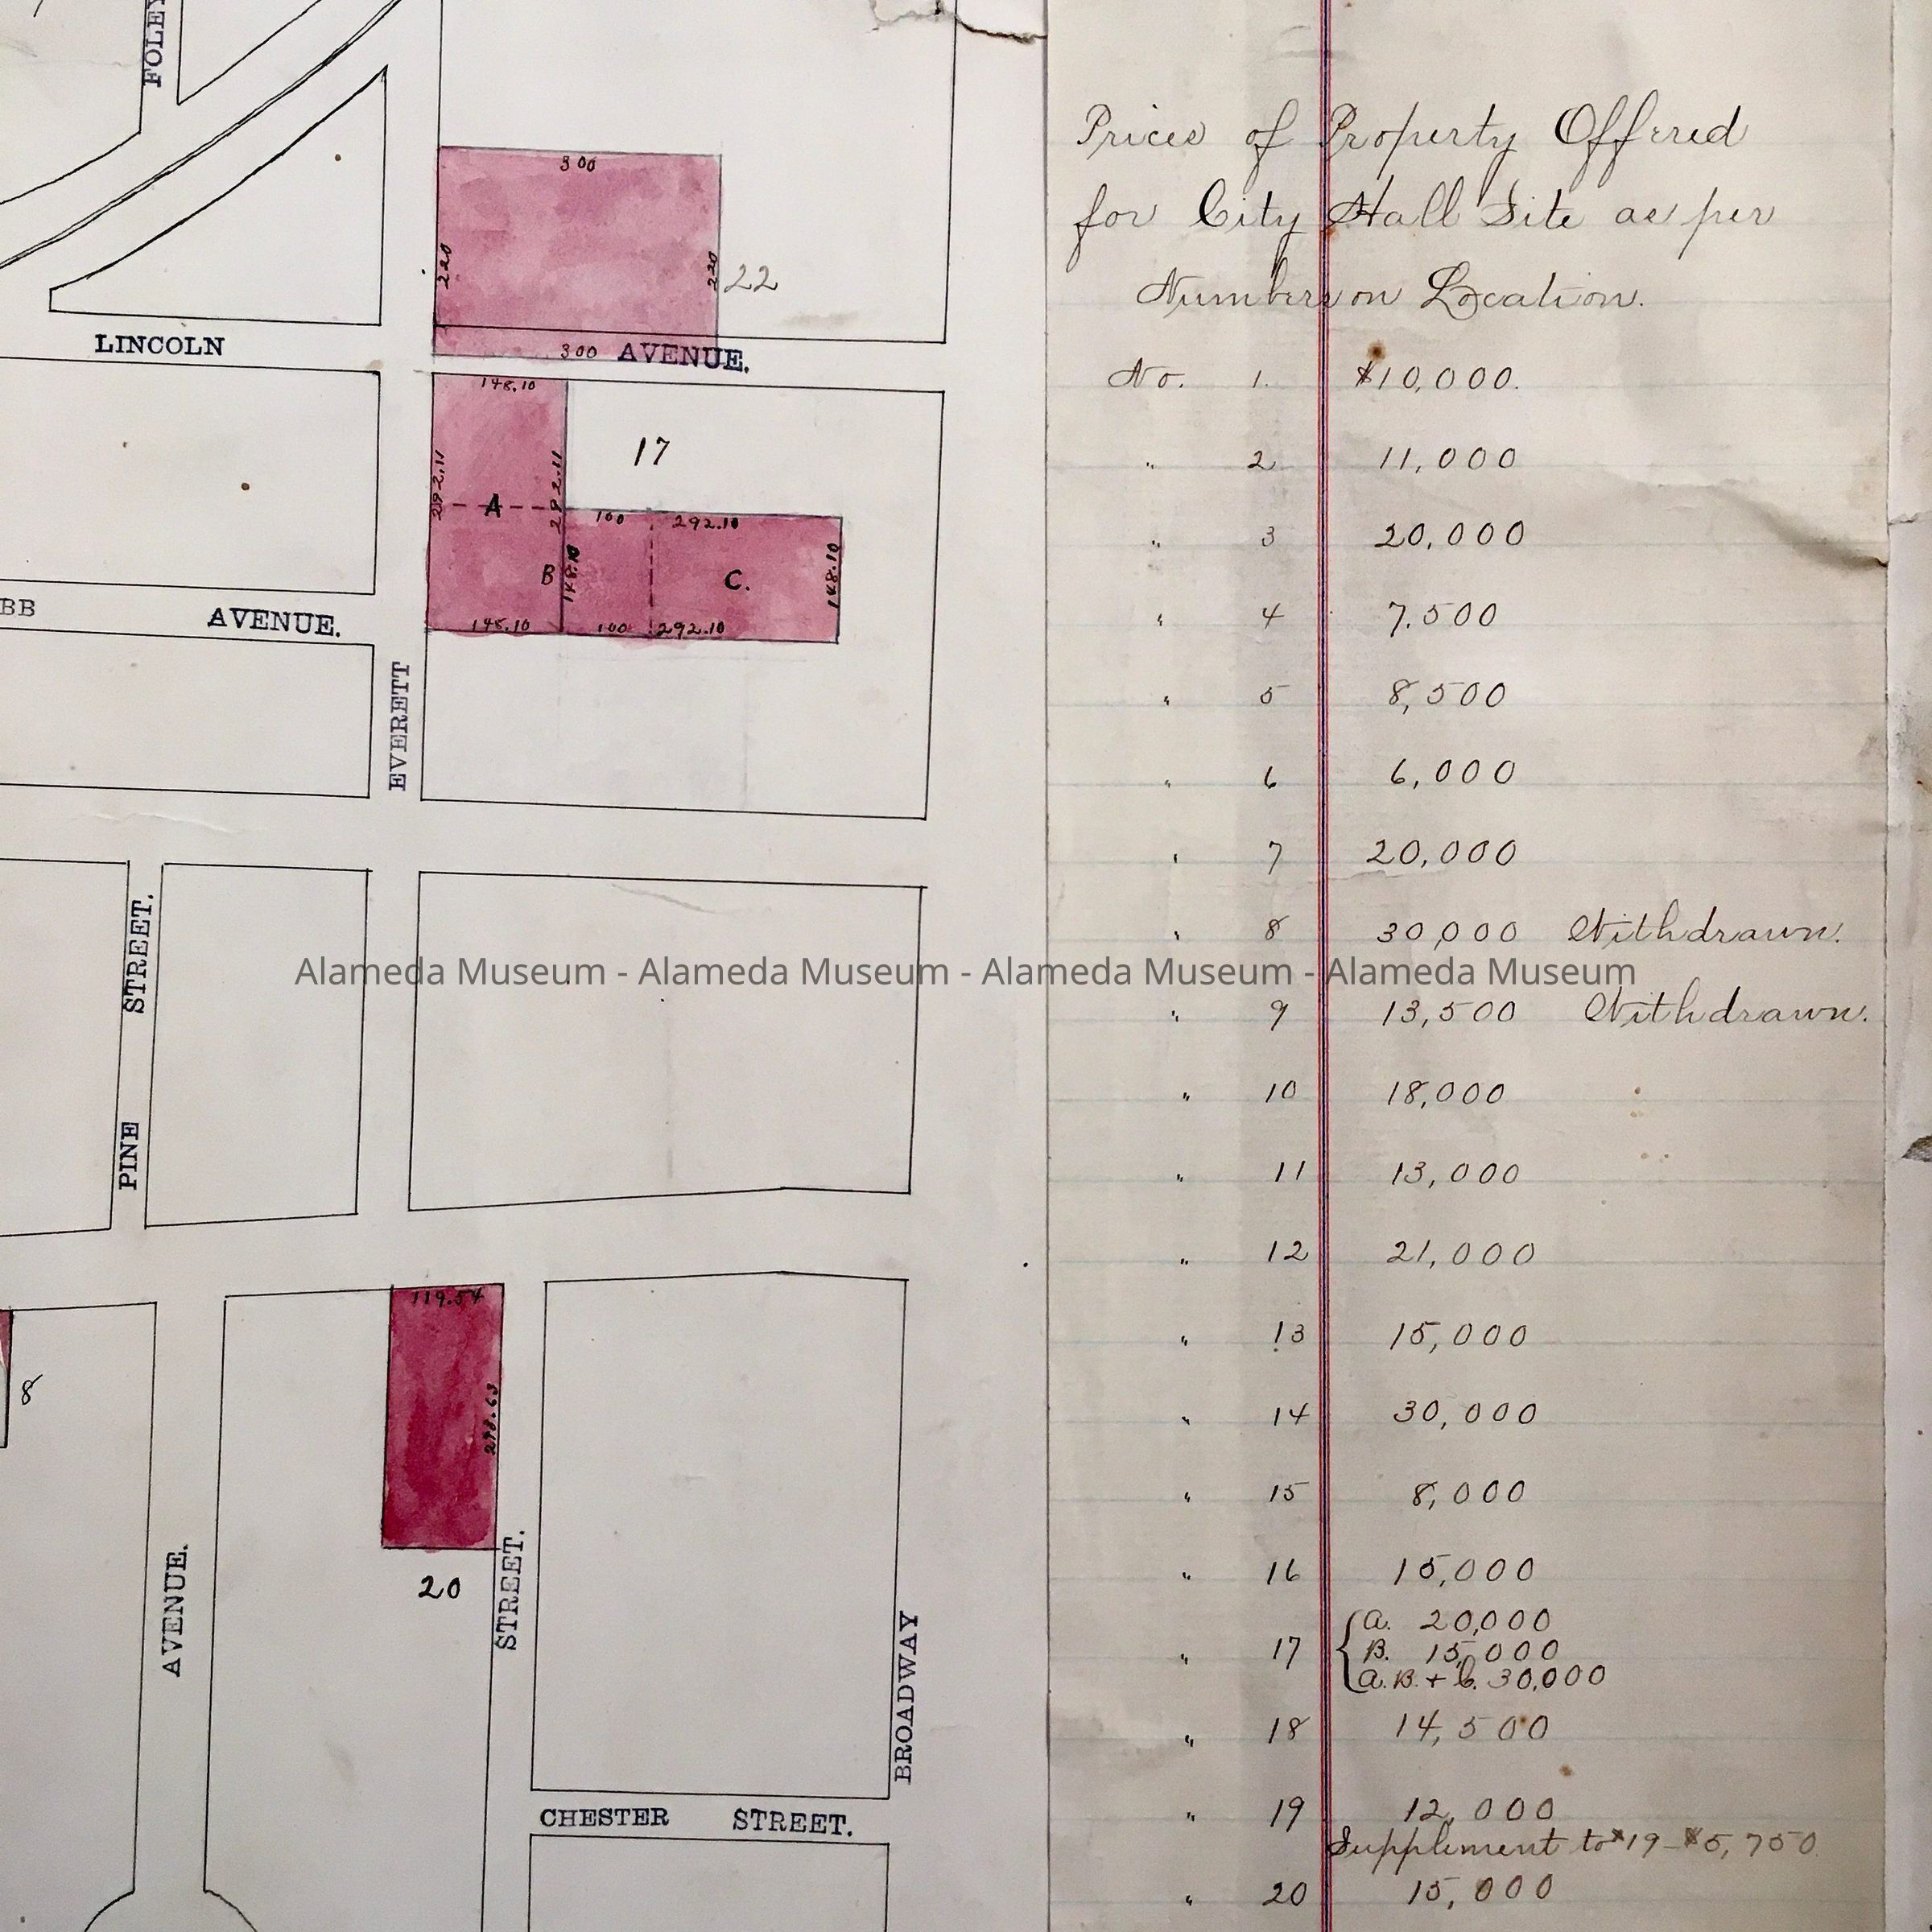 FOLEY
300
220
220
22
LINCOLN
300 AVENUE.
148.10
17
292.11
292.11
A
100
292.10
B
148.10
C.
148.10
148.10
100
292.10
BB
AVENUE.
EVERETT
STREET.
PINE
119.54
298.63
8
20
AVENUE.
STREET.
BROADWAY
CHESTER STREET.
Prices of Property Offered
for City Hall Site as per
Numbers on Location.
No. 1. $10,000.
" 2 11,000
" 3 20,000
" 4 7,500
" 5 8,500
" 6 6,000
" 7 20,000
" 8 30,000 Withdrawn.
" 9 13,500 Withdrawn.
" 10 18,000
" 11 13,000
" 12 21,000
" 13 15,000
" 14 30,000
" 15 8,000
" 16 15,000
" 17 { A. 20,000
B. 15,000
A.B. + C. 30,000
" 18 14,500
" 19 12,000
Suppliment to #19-$5,750
" 20 15,000
Alameda Museum - Alameda Museum - Alameda Museum - Alameda Museum